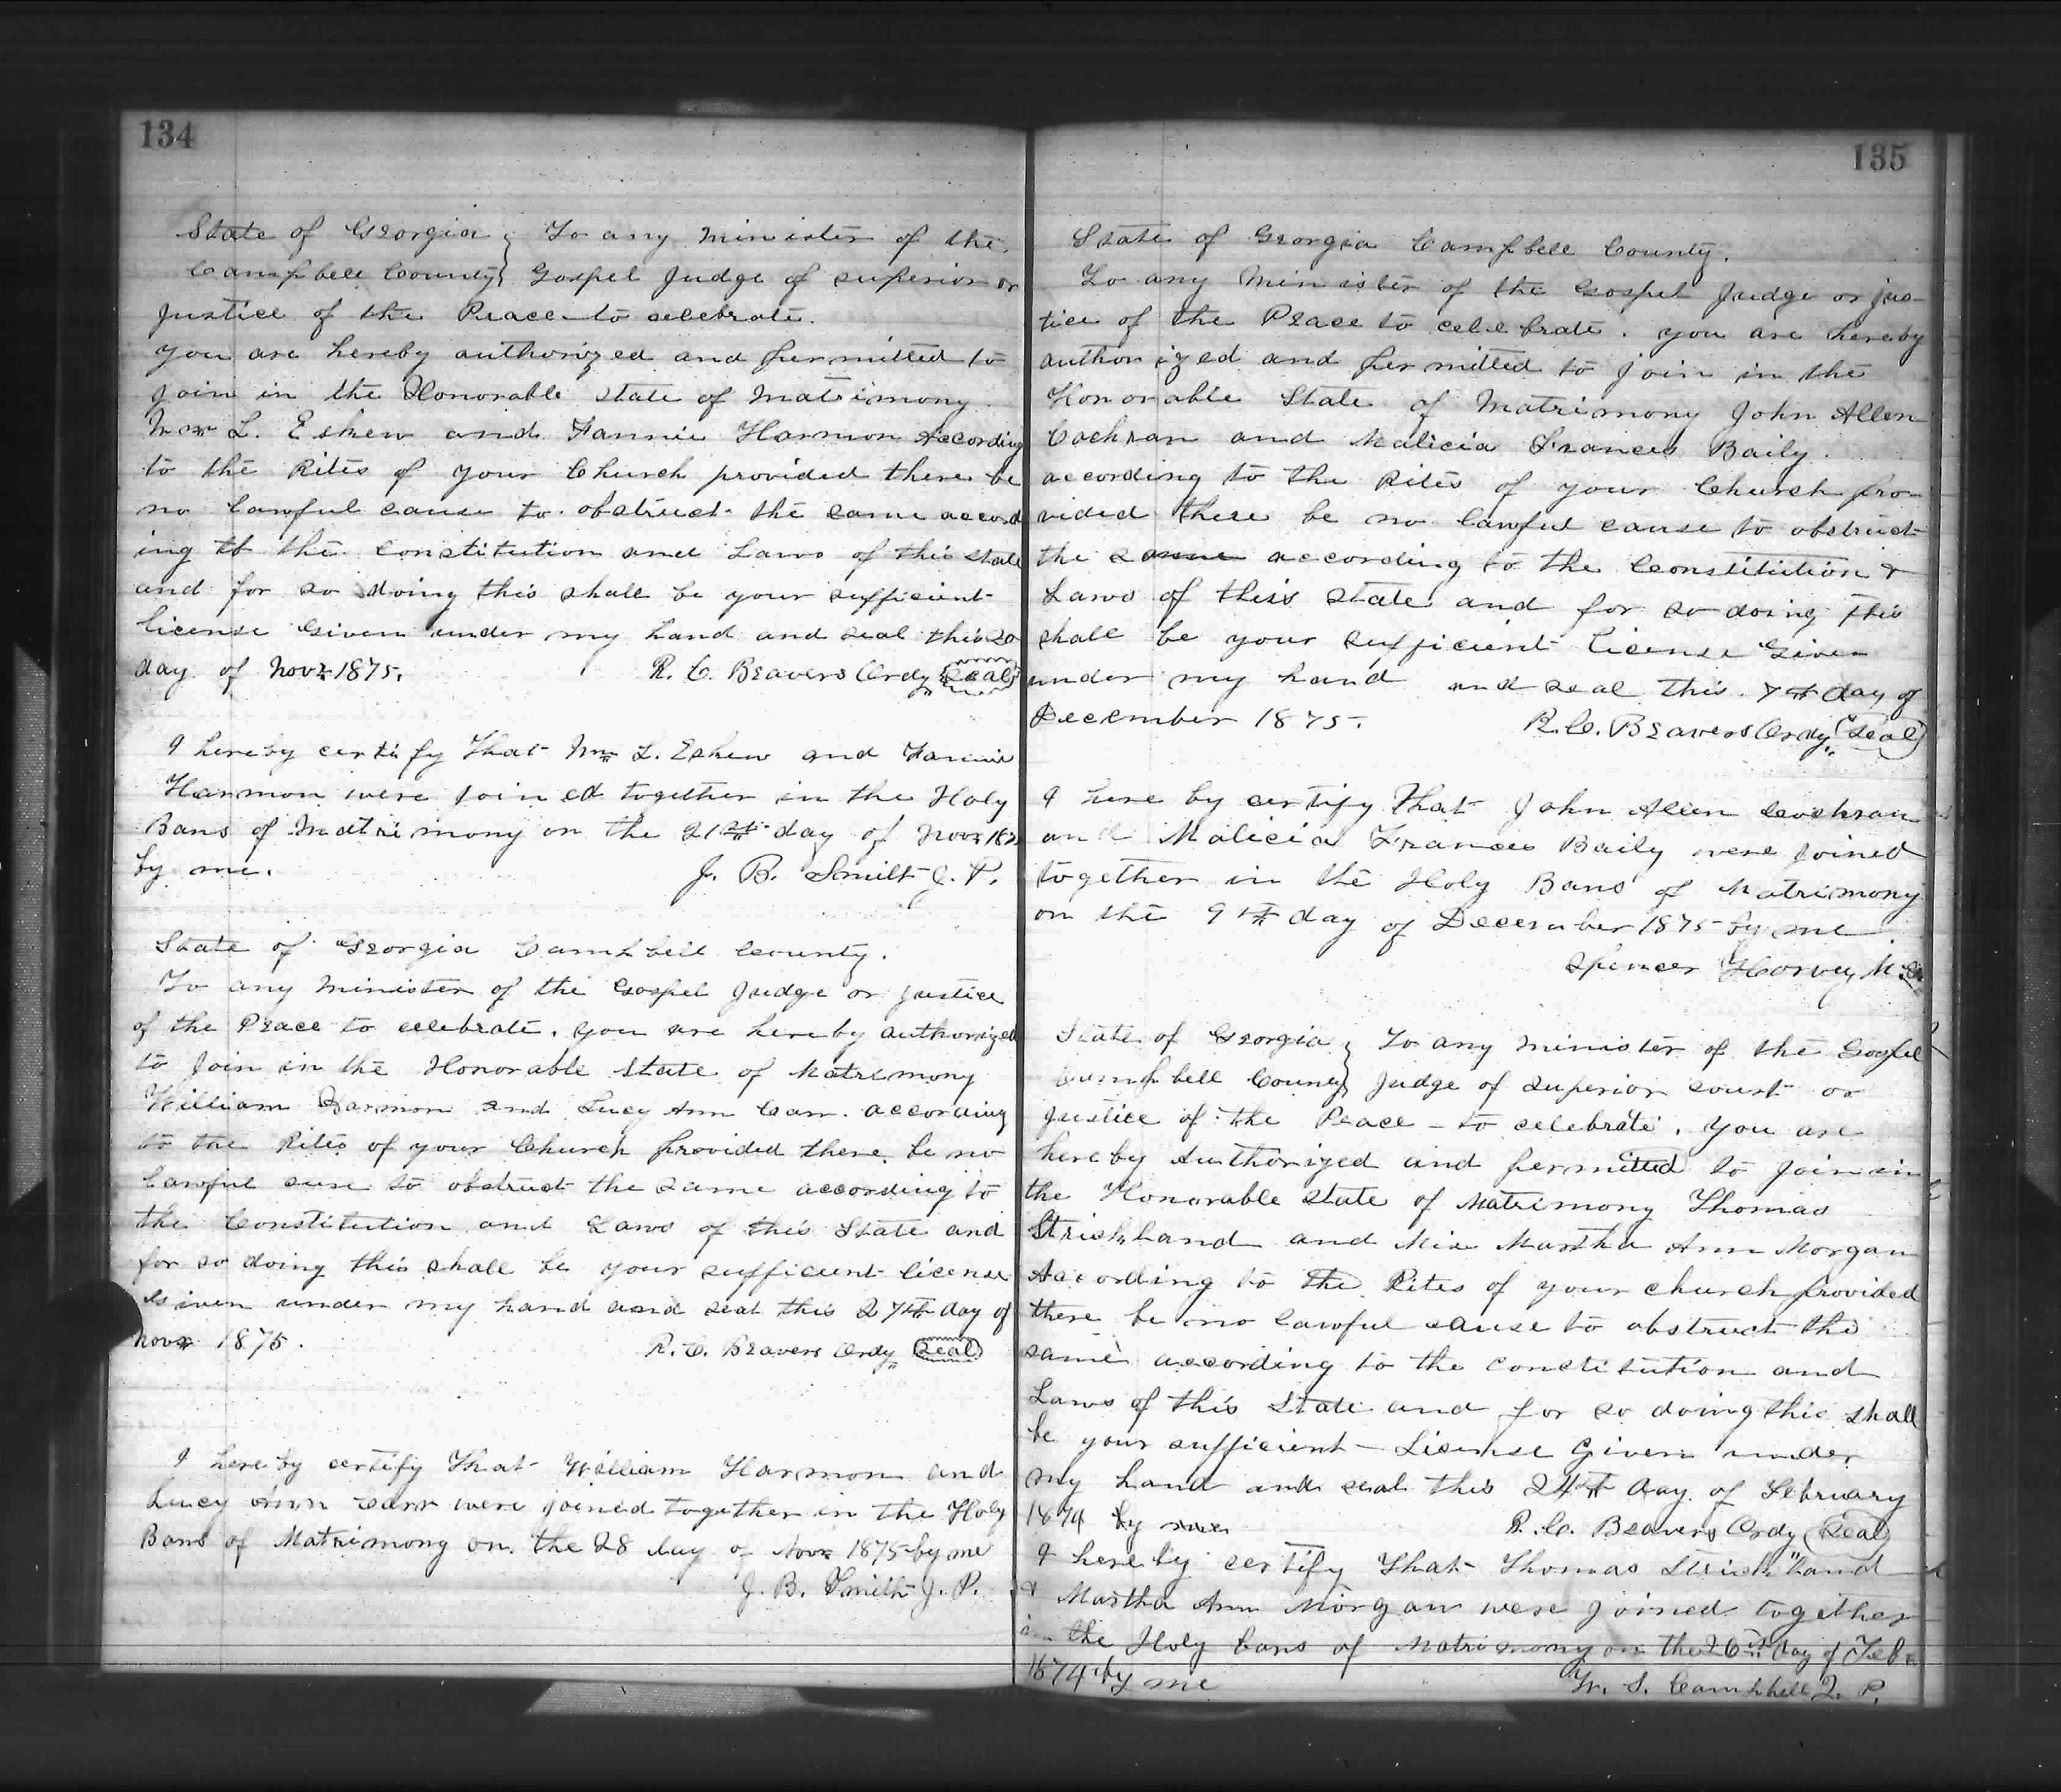 134
State of Georgia } To any minister of the
Campbell County } Gospel Judge of superior or
Justice of the Peace to celebrate.
You are hereby authorized and permitted to
join in the Honorable state of Matrimony
Wm L. Eskew and Fannie Harmon According
to the Rites of your Church provided there be
no lawful cause to obstruct the same accord
ing to the Constitution and Laws of this state
and for so doing this shall be your sufficient
license Given under my hand and seal this 20
day of Novr 1875. R. C. Beavers Ordy (Seal)
I hereby certify that Wm L. Eskew and Fannie
Harmon were joined together in the Holy
Bans of Matrimony on the 21st day of Novr 187
by me. J. B. Smith J. P.
State of Georgia Campbell County.
To any Minister of the Gospel Judge or justice
of the Peace to celebrate. you are hereby authorized
to join in the Honorable state of Matrimony
William Harmon and Lucy Ann Carr. according
to the Rites of your Church provided there be no
lawful cuse to obstruct the same according to
the Constitution and Laws of this State and
for so doing this shall be your sufficient license
Given under my hand and seal this 27th day of
Novr 1875. R. C. Beavers Ordy (Seal)
I hereby certify that William Harmon and
Lucy Ann Carr were joined together in the Holy
Bans of Matrimony on the 28 day of Novr 1875 by me
J. B. Smith J. P.
135
State of Georgia Campbell County.
To any Minister of the Gospel Judge or jus-
tice of the Peace to celebrate. you are hereby
authorized and permitted to join in the
Honorable State of Matrimony John Allen
Cochran and Malicia Frances Baily.
according to the Rites of your Church pro-
vided there be no lawful cause to obstruct
the same according to the Constitution &
Laws of this State and for so doing This
shall be your sufficient license Given
under my hand and seal this 7th day of
December 1875. R. C. Beavers Ordy (Seal)
I here by certify That John Allen Cochran
and Malicia Frances Baily were joined
together in the Holy Bans of Matrimony
on the 9th day of December 1875 by me
Spencer Harvey M
State of Georgia } To any minister of the Gospel
Campbell County } Judge of superior court or
Justice of the Peace - to celebrate. You are
hereby Authorized and permitted to join in
the Honorable state of Matrimony Thomas
Strickland and Miss Martha Ann Morgan
According to the Rites of your church provided
there be no lawful cause to obstruct the
same according to the constitution and
Laws of this State and for so doing this shall
be your sufficient License Given under
my hand and seal this 24th day of February
1874 by R. C. Beavers Ordy (Seal)
I hereby certify That Thomas Strickland
& Martha Ann Morgan were joined together
in the Holy bans of Matrimony on the 26th day of Feb.
1874 by me W. S. Campbell J. P.